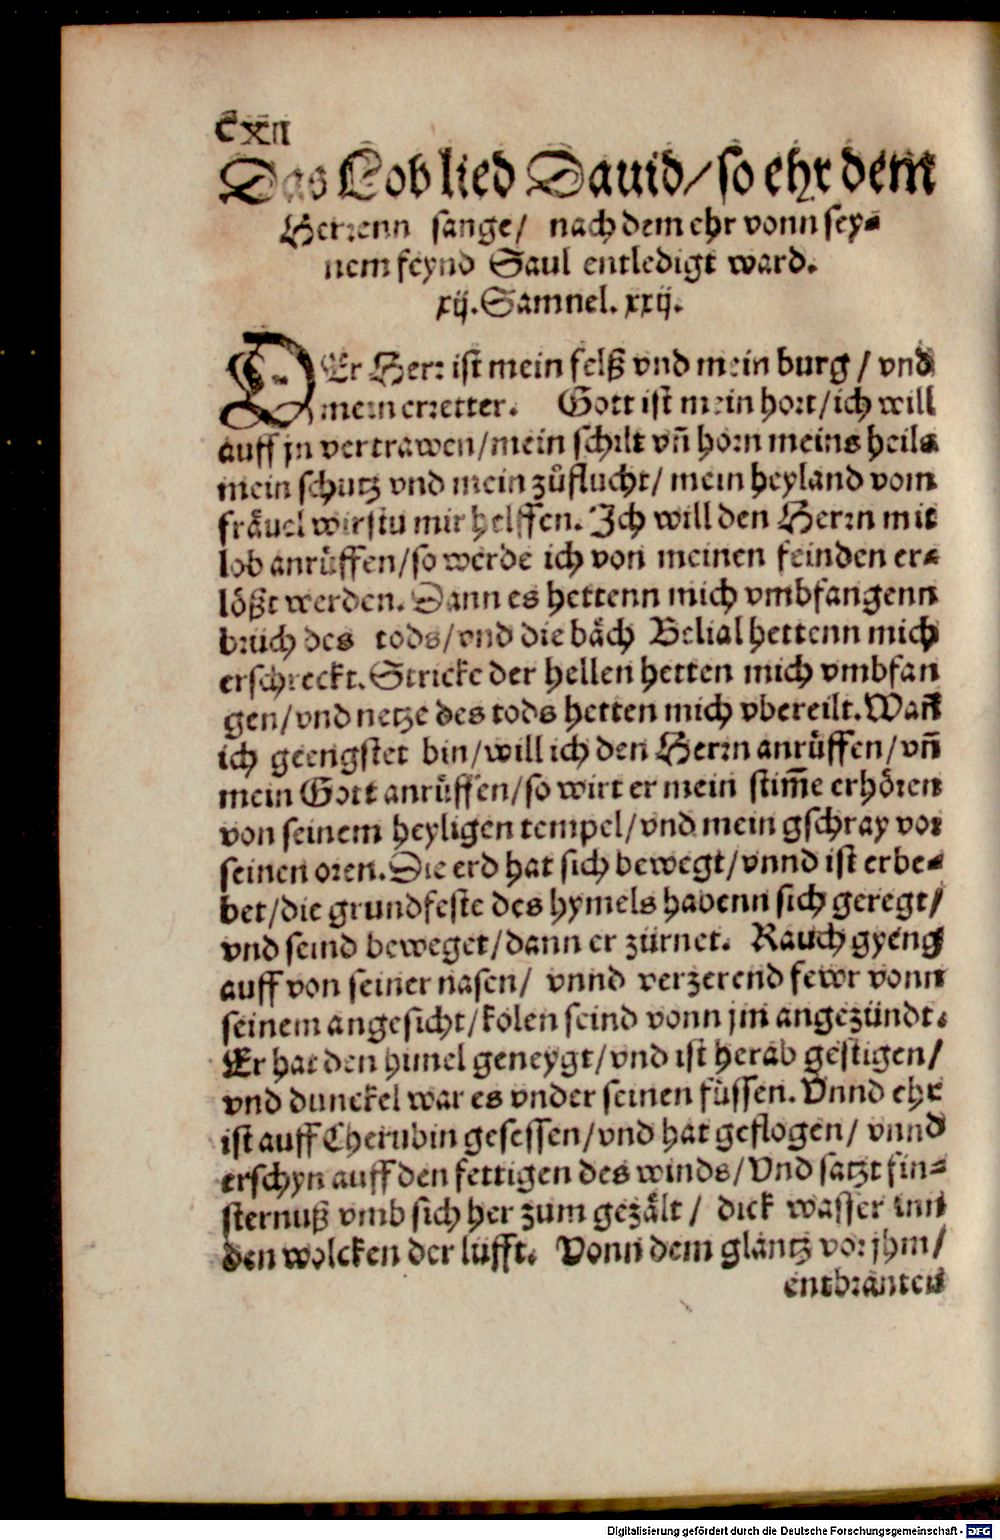 CXII
Das Lob lied Dauid/ so ehr dem
Herrenn sange/ nach dem ehr vonn sey-
nem feynd Saul entledigt ward.
xij. Samnel. xxij.
DEr Herr ist mein felß vnd mein burg / vnd
mein erretter. Gott ist mein hort/ ich will
auff jn vertrawen/ mein schilt vñ horn meins heils
mein schutz vnd mein zůflucht/ mein heyland vom
fräuel wirstu mir helffen. Ich will den Herrn mit
lob anrůffen/ so werde ich von meinen feinden er-
lößt werden. Dann es hettenn mich vmbfangenn
bruch des tods/ vnd die bäch Belial hettenn mich
erschreckt. Stricke der hellen hetten mich vmbfan
gen/ vnd netze des tods hetten mich vbereilt. Wañ
ich geengstet bin/ will ich den Herrn anrůffen/ vñ
mein Gott anrůffen/ so wirt er mein stim̃e erhören
von seinem heyligen tempel/ vnd mein gschray vor
seinen oren. Die erd hat sich bewegt/ vnnd ist erbe-
bet/ die grundfeste des hymels habenn sich geregt/
vnd seind beweget/ dann er zürnet. Rauch gyeng
auff von seiner nasen/ vnnd verzerend fewr vonn
seinem angesicht/ kolen seind vonn jm angezündt.
Er hat den himel geneygt/ vnd ist herab gestigen/
vnd dunckel war es vnder seinen füssen. Vnnd ehr
ist auff Cherubin gesessen/ vnd hat geflogen/ vnnd
erschyn auff den fettigen des winds/ Vnd satzt fin-
sternuß vmb sich her zum gezält / dick wasser inn
den wolcken der lüfft. Vonn dem glantz vor jhm/
entbranten
Digitalisierung gefördert durch die Deutsche Forschungsgemeinschaft - DFG